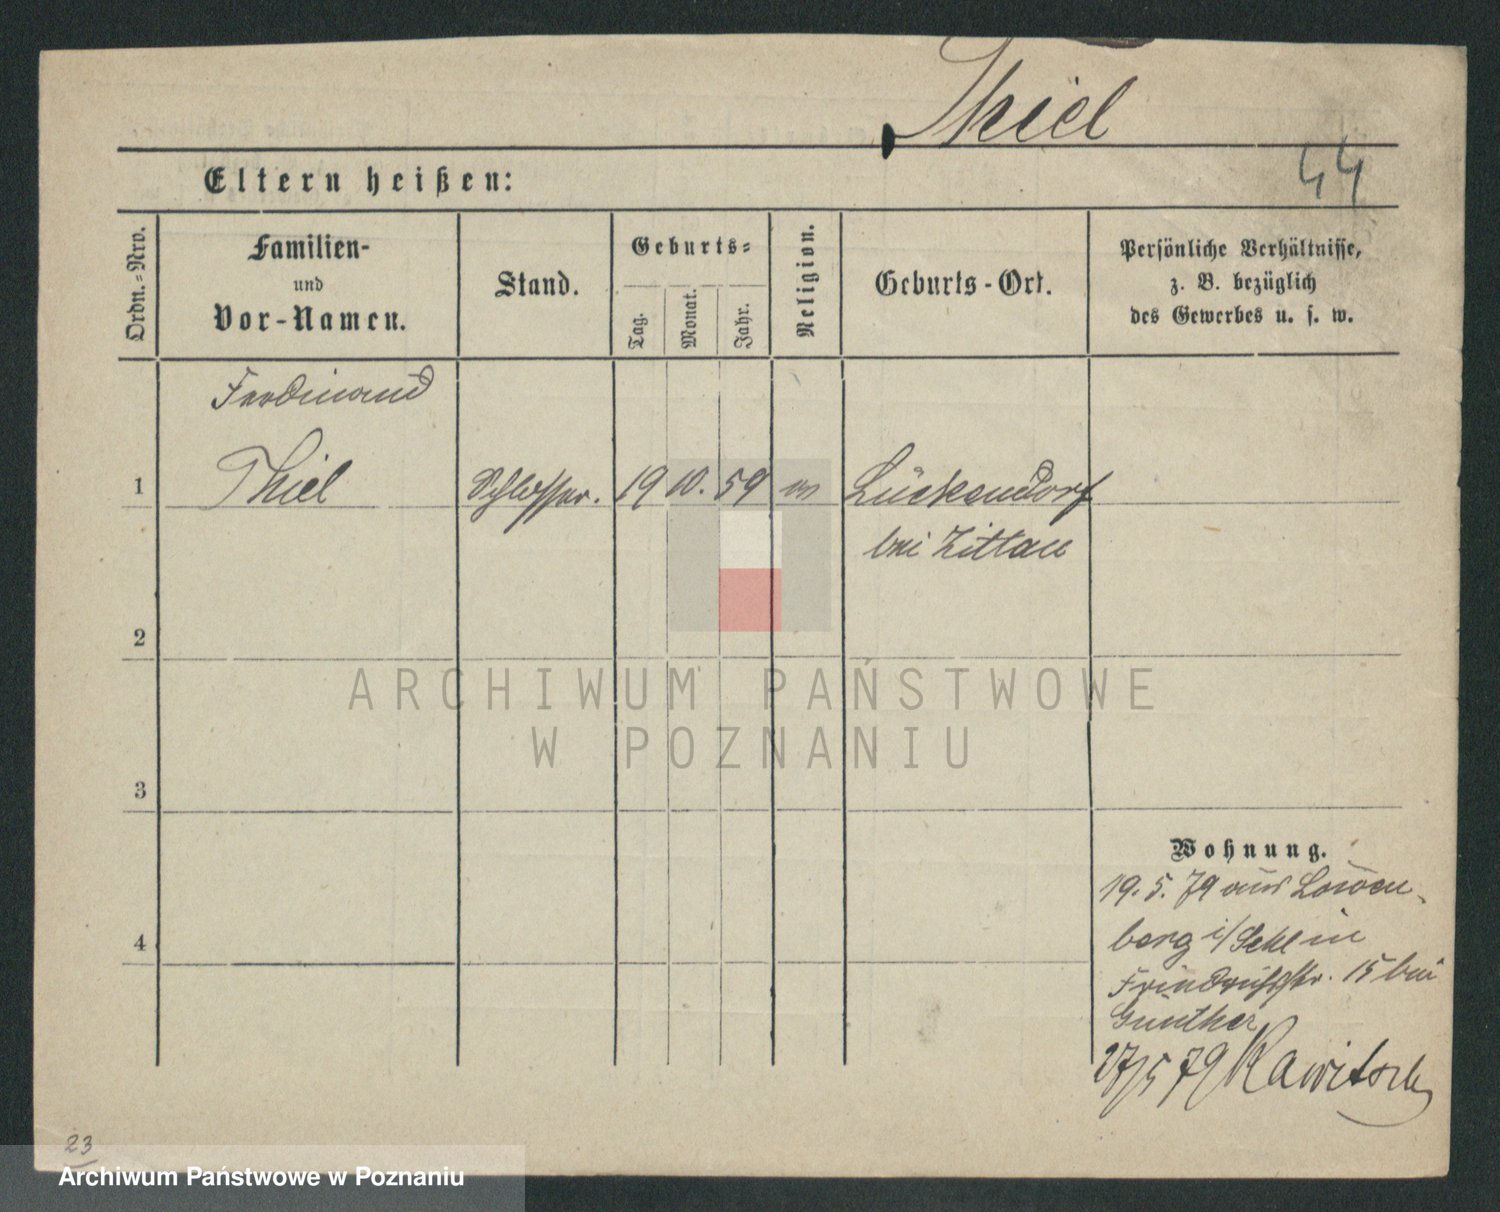 Thiel
44
Eltern heißen:
Ordn.-Nro.
Familien-
und
Vor-Namen.
Stand.
Geburts-
Tag.
Monat.
Jahr.
Religion.
Geburts-Ort.
Persönliche Verhältnisse,
z. B. bezüglich
des Gewerbes u. s. w.
Ferdinand
1 Thiel Schlosser. 19 10. 59 Lückendorf
bei Zittau
2
ARCHIWUM PAŃSTWOWE
W POZNANIU
3
Wohnung.
19. 5. 79 aus Löwen-
4
berg i/Schl in
Friedrichstr. 15 bei
Günther
27/5 79 Rawitsch
23
Archiwum Państwowe w Poznaniu